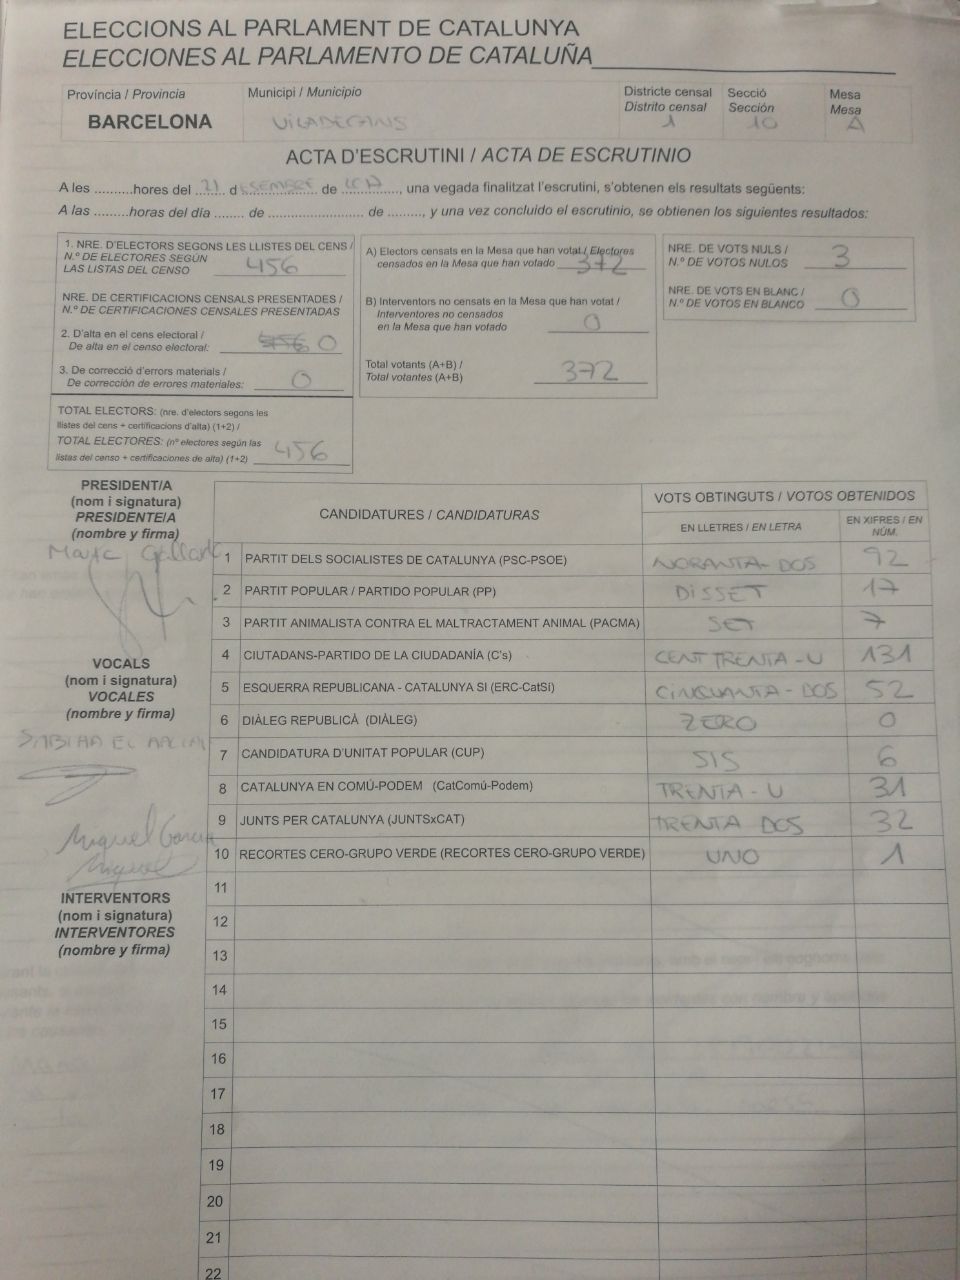 ELECCIONS AL PARLAMENT DE CATALUNYA
ELECCIONES AL PARLAMENTO DE CATALUÑA
Província / Provincia
BARCELONA
Municipi / Municipio
VILADECANS
Districte censal
Distrito censal
1
Secció
Sección
10
Mesa
Mesa
A
ACTA D'ESCRUTINI / ACTA DE ESCRUTINIO
A les ..........hores del 21 d ESEMBRE de 2017, una vegada finalitzat l'escrutini, s'obtenen els resultats següents:
A las ..........horas del día ........ de .......................... de .........., y una vez concluido el escrutinio, se obtienen los siguientes resultados:
1. NRE. D'ELECTORS SEGONS LES LLISTES DEL CENS /
N.º DE ELECTORES SEGÚN
LAS LISTAS DEL CENSO 456
NRE. DE CERTIFICACIONS CENSALS PRESENTADES /
N.º DE CERTIFICACIONES CENSALES PRESENTADAS
2. D'alta en el cens electoral /
De alta en el censo electoral: 0
3. De correcció d'errors materials /
De corrección de errores materiales: 0
TOTAL ELECTORS: (nre. d'electors segons les
llistes del cens + certificacions d'alta) (1+2) /
TOTAL ELECTORES: (nº electores según las
listas del censo + certificaciones de alta) (1+2) 456
A) Electors censats en la Mesa que han votat / Electores
censados en la Mesa que han votado 372
B) Interventors no censats en la Mesa que han votat /
Interventores no censados
en la Mesa que han votado 0
Total votants (A+B) /
Total votantes (A+B) 372
NRE. DE VOTS NULS /
N.º DE VOTOS NULOS 3
NRE. DE VOTS EN BLANC /
N.º DE VOTOS EN BLANCO 0
PRESIDENT/A
(nom i signatura)
PRESIDENTE/A
(nombre y firma)
VOCALS
(nom i signatura)
VOCALES
(nombre y firma)
Miquel Garcia
Miquel
INTERVENTORS
(nom i signatura)
INTERVENTORES
(nombre y firma)
CANDIDATURES / CANDIDATURAS
VOTS OBTINGUTS / VOTOS OBTENIDOS
EN LLETRES / EN LETRA
EN XIFRES / EN
NÚM.
1 PARTIT DELS SOCIALISTES DE CATALUNYA (PSC-PSOE) NORANTA-DOS 92
2 PARTIT POPULAR / PARTIDO POPULAR (PP) DISSET 17
3 PARTIT ANIMALISTA CONTRA EL MALTRACTAMENT ANIMAL (PACMA) SET 7
4 CIUTADANS-PARTIDO DE LA CIUDADANÍA (C's) CENT TRENTA-U 131
5 ESQUERRA REPUBLICANA - CATALUNYA SI (ERC-CatSí) CINQUANTA-DOS 52
6 DIÀLEG REPUBLICÀ (DIÀLEG) ZERO 0
7 CANDIDATURA D'UNITAT POPULAR (CUP) SIS 6
8 CATALUNYA EN COMÚ-PODEM (CatComú-Podem) TRENTA-U 31
9 JUNTS PER CATALUNYA (JUNTSxCAT) TRENTA DOS 32
10 RECORTES CERO-GRUPO VERDE (RECORTES CERO-GRUPO VERDE) UNO 1
11
12
13
14
15
16
17
18
19
20
21
22